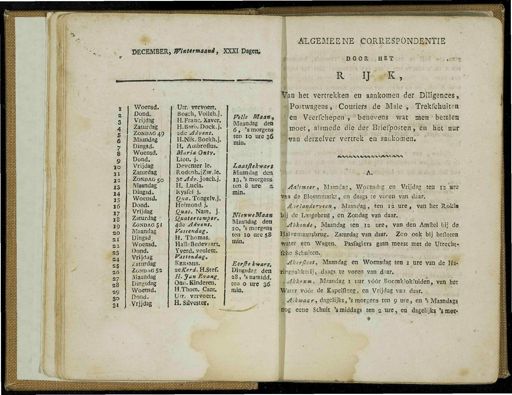 DECEMBER, Wintermaand, XXXI Dagen.
1 Woensd. Uit. vervoert.
2 Dond. Bosch, Vollch.j.
3 Vrijdag H. Franc. Xaver.
4 Zaturdag H. Barb.
5 ZONDAG 49 2de Advent.
6 Maandag H. Nik. Boekh.j.
7 Dingsd. H. Ambrosius.
8 Woensd. Maria Ontv.
9 Dond.
10 Vrijdag Deventer le.
11 Zaturdag
12 ZONDAG 50 3e Adv.
13 Maandag H. Lucia.
14 Dingsd. Ryssel j.
15 Woensd. Qua. Tongelv.j.
16 Dond. Helmond j.
17 Vrijdag Quat. Nam. j.
18 Zaturdag Quatertemper.
19 ZONDAG 51 4de Advent.
20 Maandag Vastendag.
21 Dingsd. H. Thomas.
22 Woensd. Hall. Bedevaart.
23 Dond.
24 Vrijdag Vastendag.
25 Zaturdag Kersmis.
26 ZONDAG 52 2e Kerd. H. Stef.
27 Maandag H. Jan Evang.
28 Dingsdag Onn. Kinderen.
29 Woensd. H. Thom. Cant.
30 Dond. Uit. vervoert.
31 Vrijdag H. Silvester.
Volle Maan,
Maandag den
6, 's morgens
ten 10 ure 36
min.
Laatstekwart
Maandag den
13, 's morgens
ten 8 ure 2
min.
Nieuwe Maan
Maandag den
20, 's morgens
ten 10 ure 58
min.
Eerstekwart
Dingsdag den
28, 's namidd.
ten 0 ure 36
min.
ALGEMEENE CORRESPONDENTIE
DOOR HET
RIJK,
Van het vertrekken en aankomen der Diligences,
Postwagens, Couriers de Male, Trekschuiten
en Veerschepen, benevens wat men betalen
moet, alsmede die der Briefposten, en het uur
van derzelver vertrek en aankomen.
A.
Aalsmeer, Maandag, Woensdag en Vrijdag ten 12 ure
van de Bloemmarkt, en daags te voren van daar.
Aarlanderveen, Maandag, ten 12 ure, van het Rokin
bij de Langebrug, en Zondag van daar.
Abkoude, Maandag ten 12 ure, van den Amstel bij de
Halvemaansbrug. Zaturdag van daar. Zoo ook bij besloten
water een Wagen. Pasfagiers gaan meest met de Utrecht-
sche Schuiten.
Abcoude, Maandag en Woensdag ten 1 ure van de
daags te voren van daar.
Akkrum, Maandag 1 uur vóór Boomkloksluiden, van het
Water vóór de Kapelsteeg, en Vrijdag van daar.
Alkmaar, dagelijks, 's morgens ten 9 ure, en 's Maandags
nog eene Schuit 's middags ten 2 ure, en dagelijks 's mor-